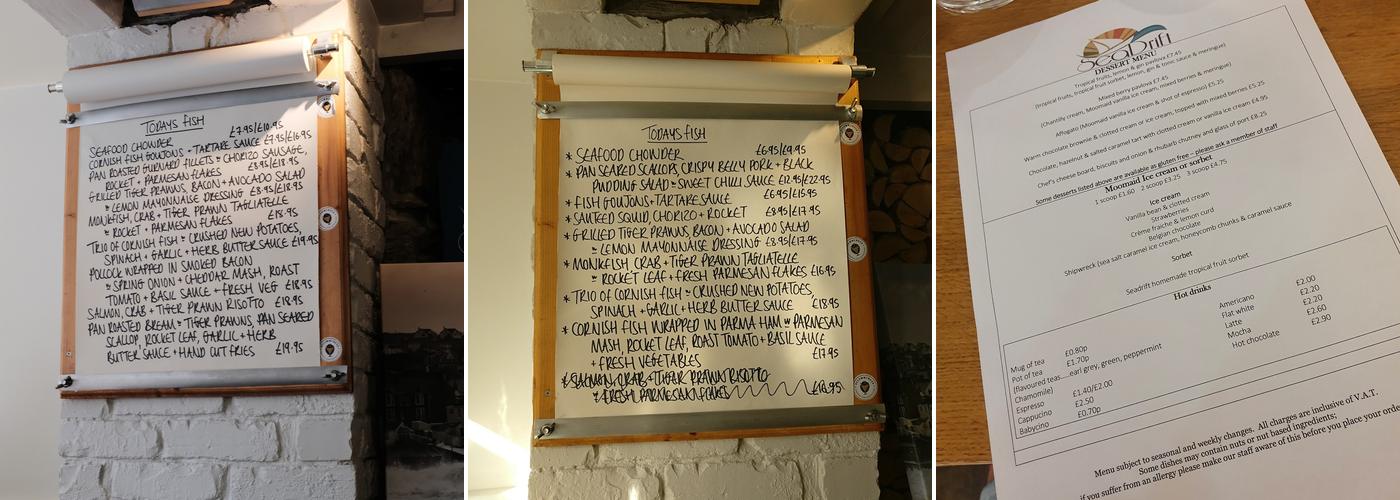 TODAYS FISH
SEAFOOD CHOWDER £7.95/£10.95
CORNISH FISH GOUJONS + TARTARE SAUCE £7.95/£16.95
PAN ROASTED GURNARD FILLETS = CHORIZO SAUSAGE,
ROCKET + PARMESAN FLAKES £8.95/£18.95
GRILLED TIGER PRAWNS, BACON + AVOCADO SALAD
= LEMON MAYONNAISE DRESSING £8.95/£18.95
MONKFISH, CRAB + TIGER PRAWN TAGLIATELLE
= ROCKET + PARMESAN FLAKES £18.95
TRIO OF CORNISH FISH = CRUSHED NEW POTATOES,
SPINACH + GARLIC + HERB BUTTER SAUCE £19.95
POLLOCK WRAPPED IN SMOKED BACON
= SPRING ONION + CHEDDAR MASH, ROAST
TOMATO + BASIL SAUCE + FRESH VEG £18.95
SALMON, CRAB + TIGER PRAWN RISOTTO £18.95
PAN ROASTED BREAM = TIGER PRAWNS, PAN SEARED
SCALLOP, ROCKET LEAF, GARLIC + HERB
BUTTER SAUCE + HAND CUT FRIES £19.95
TODAYS FISH
* SEAFOOD CHOWDER £6.95/£9.95
* PAN SEARED SCALLOPS, CRISPY BELLY PORK + BLACK
PUDDING SALAD = SWEET CHILLI SAUCE £12.95/£22.95
* FISH GOUJONS + TARTARE SAUCE £6.95/£15.95
* SAUTEED SQUID, CHORIZO + ROCKET £8.95/£17.95
* GRILLED TIGER PRAWNS, BACON + AVOCADO SALAD
= LEMON MAYONNAISE DRESSING £8.95/£17.95
* MONKFISH, CRAB + TIGER PRAWN TAGLIATELLE
= ROCKET LEAF + FRESH PARMESAN FLAKES £16.95
* TRIO OF CORNISH FISH = CRUSHED NEW POTATOES,
SPINACH + GARLIC + HERB BUTTER SAUCE £18.95
* CORNISH FISH WRAPPED IN PARMA HAM = PARMESAN
MASH, ROCKET LEAF, ROAST TOMATO + BASIL SAUCE
+ FRESH VEGETABLES £17.95
* SALMON, CRAB + TIGER PRAWN RISOTTO
= FRESH PARMESAN FLAKES £16.95
SeaDrift
DESSERT MENU
Tropical fruits, lemon & gin pavlova £7.45
(tropical fruits, tropical fruit sorbet, lemon, gin & tonic sauce & meringue)
Mixed berry pavlova £7.45
(Chantilly cream, Moomaid vanilla ice cream, mixed berries & meringue)
Affogato (Moomaid vanilla ice cream & shot of espresso) £5.25
Warm chocolate brownie & clotted cream or ice cream, topped with mixed berries £5.25
Chocolate, hazelnut & salted caramel tart with clotted cream or vanilla ice cream £4.95
Chef's cheese board, biscuits and onion & rhubarb chutney and glass of port £8.25
Some desserts listed above are available as gluten free – please ask a member of staff
Moomaid Ice cream or sorbet
1 scoop £1.60 2 scoop £3.25 3 scoop £4.75
Ice cream
Vanilla bean & clotted cream
Strawberries
Crème fraiche & lemon curd
Belgian chocolate
Shipwreck (sea salt caramel ice cream, honeycomb chunks & caramel sauce)
Sorbet
Seadrift homemade tropical fruit sorbet
Hot drinks
Mug of tea £0.80p
Pot of tea £1.70p
(flavoured teas....earl grey, green, peppermint
Chamomile)
Espresso £1.40/£2.00
Cappucino £2.50
Babycino £0.70p
Americano £2.00
Flat white £2.20
Latte £2.20
Mocha £2.60
Hot chocolate £2.90
Menu subject to seasonal and weekly changes. All charges are inclusive of V.A.T.
Some dishes may contain nuts or nut based ingredients;
if you suffer from an allergy please make our staff aware of this before you place your